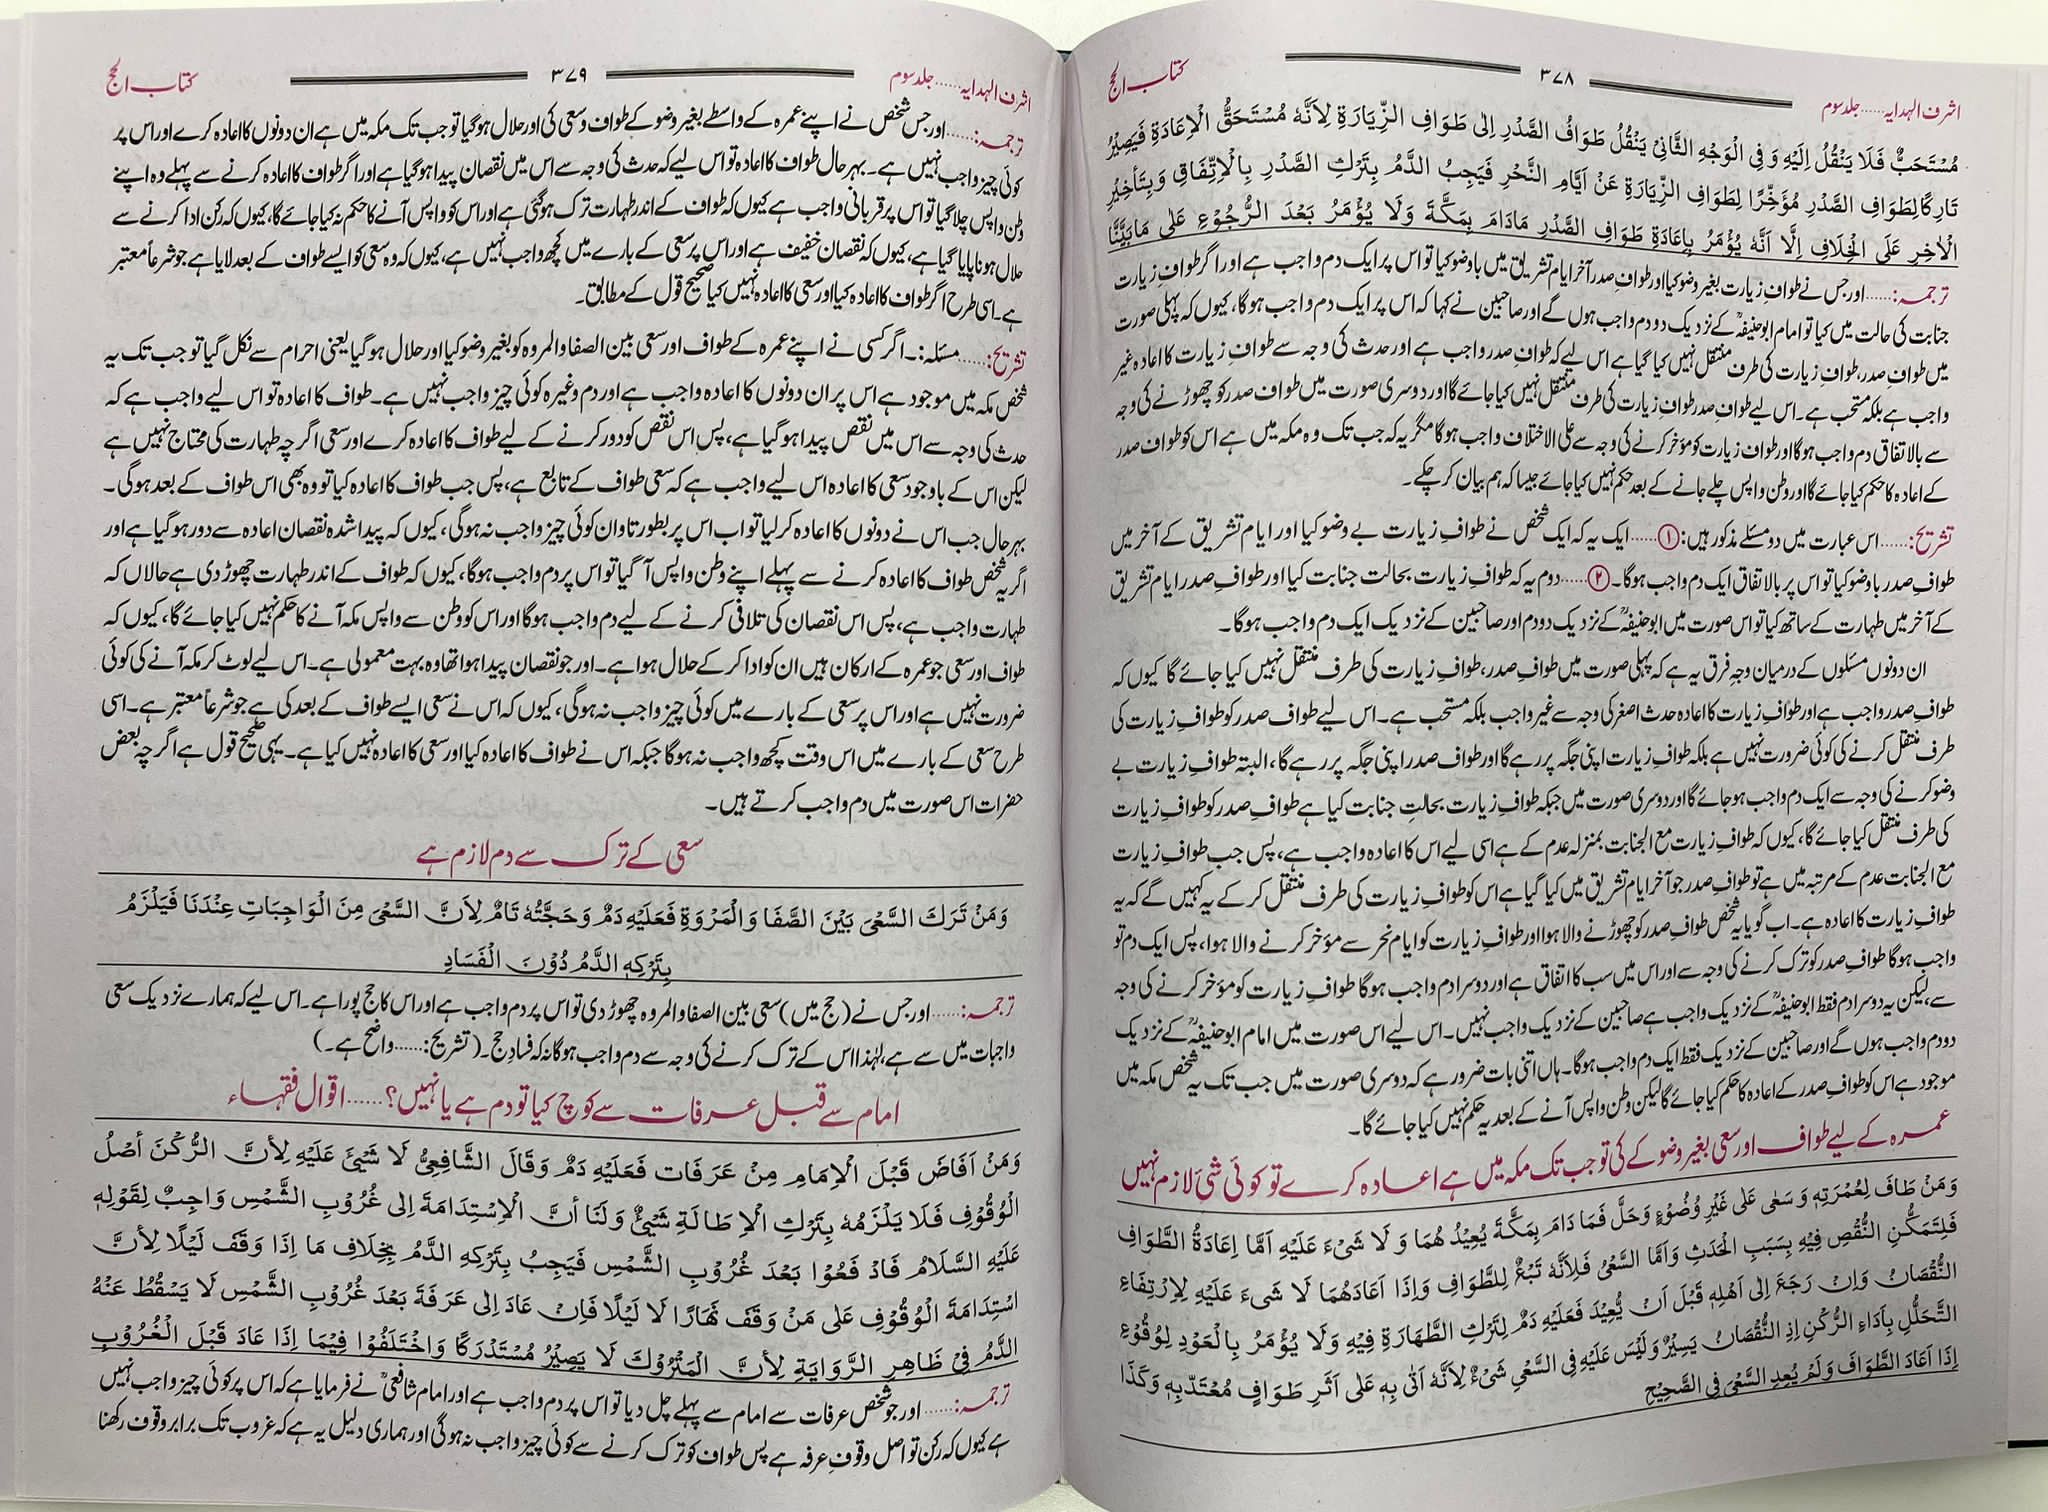 اشرف الہدایہ......جلد سوم ۳۷۸ کتاب الحج
مُسْتَحَبٌّ فَلَا يَنْقُلُ اِلَيْهِ وَفِى الْوَجْهِ الثَّانِىْ يَنْقُلُ طَوَافُ الصَّدْرِ اِلٰى طَوَافِ الزِّيَارَةِ لِاَنَّهٗ مُسْتَحَقُّ الْاِعَادَةِ فَيَصِيْرُ
تَارِكًا لِطَوَافِ الصَّدْرِ مُؤَخِّرًا لِطَوَافِ الزِّيَارَةِ عَنْ اَيَّامِ النَّحْرِ فَيَجِبُ الدَّمُ بِتَرْكِ الصَّدْرِ بِالْاِتِّفَاقِ وَبِتَأْخِيْرِ
الْاٰخِرِ عَلَى الْخِلَافِ اِلَّا اَنَّهٗ يُؤْمَرُ بِاِعَادَةِ طَوَافِ الصَّدْرِ مَادَامَ بِمَكَّةَ وَلَا يُؤْمَرُ بَعْدَ الرُّجُوْعِ عَلٰى مَابَيَّنَّا
ترجمہ:......اور جس نے طوافِ زیارت بغیر وضو کیا اور طوافِ صدر آخر ایام تشریق میں باوضو کیا تو اس پر ایک دم واجب ہے اور اگر طوافِ زیارت
جنابت کی حالت میں کیا تو امام ابوحنیفہؒ کے نزدیک دو دم واجب ہوں گے اور صاحبین نے کہا کہ اس پر ایک دم واجب ہوگا، کیوں کہ پہلی صورت
میں طوافِ صدر، طوافِ زیارت کی طرف منتقل نہیں کیا گیا ہے اس لیے کہ طوافِ صدر واجب ہے اور حدث کی وجہ سے طوافِ زیارت کا اعادہ غیر
واجب ہے بلکہ مستحب ہے۔ اس لیے طوافِ صدر طوافِ زیارت کی طرف منتقل نہیں کیا جائے گا اور دوسری صورت میں طواف صدر کو چھوڑنے کی وجہ
سے بالاتفاق دم واجب ہوگا اور طواف زیارت کو مؤخر کرنے کی وجہ سے علی الاختلاف واجب ہوگا مگر یہ کہ جب تک وہ مکہ میں ہے اس کو طواف صدر
کے اعادہ کا حکم کیا جائے گا اور وطن واپس چلے جانے کے بعد حکم نہیں کیا جائے جیسا کہ ہم بیان کر چکے۔
تشریح:......اس عبارت میں دو مسئلے مذکور ہیں: ①......ایک یہ کہ ایک شخص نے طوافِ زیارت بے وضو کیا اور ایام تشریق کے آخر میں
طوافِ صدر باوضو کیا تو اس پر بالاتفاق ایک دم واجب ہوگا۔ ②......دوم یہ کہ طوافِ زیارت بحالت جنابت کیا اور طوافِ صدر ایام تشریق
کے آخر میں طہارت کے ساتھ کیا تو اس صورت میں ابوحنیفہؒ کے نزدیک دو دم اور صاحبین کے نزدیک ایک دم واجب ہوگا۔
ان دونوں مسئلوں کے درمیان وجہِ فرق یہ ہے کہ پہلی صورت میں طوافِ صدر، طوافِ زیارت کی طرف منتقل نہیں کیا جائے گا کیوں کہ
طوافِ صدر واجب ہے اور طوافِ زیارت کا اعادہ حدث اصغر کی وجہ سے غیر واجب بلکہ مستحب ہے۔ اس لیے طواف صدر کو طوافِ زیارت کی
طرف منتقل کرنے کی کوئی ضرورت نہیں ہے بلکہ طوافِ زیارت اپنی جگہ پر رہے گا اور طواف صدر اپنی جگہ پر رہے گا، البتہ طوافِ زیارت بے
وضو کرنے کی وجہ سے ایک دم واجب ہو جائے گا اور دوسری صورت میں جبکہ طوافِ زیارت بحالتِ جنابت کیا ہے طوافِ صدر کو طوافِ زیارت
کی طرف منتقل کیا جائے گا، کیوں کہ طوافِ زیارت مع الجنابت بمنزلہ عدم کے ہے اسی لیے اس کا اعادہ واجب ہے، پس جب طوافِ زیارت
مع الجنابت عدم کے مرتبہ میں ہے تو طوافِ صدر جو آخر ایام تشریق میں کیا گیا ہے اس کو طوافِ زیارت کی طرف منتقل کر کے یہ کہیں گے کہ یہ
طوافِ زیارت کا اعادہ ہے۔ اب گویا یہ شخص طوافِ صدر کو چھوڑنے والا ہوا اور طوافِ زیارت کو ایام نحر سے مؤخر کرنے والا ہوا، پس ایک دم تو
واجب ہوگا طوافِ صدر کو ترک کرنے کی وجہ سے اور اس میں سب کا اتفاق ہے اور دوسرا دم واجب ہوگا طوافِ زیارت کو مؤخر کرنے کی وجہ
سے، لیکن یہ دوسرا دم فقط ابوحنیفہؒ کے نزدیک واجب ہے صاحبین کے نزدیک واجب نہیں۔ اس لیے اس صورت میں امام ابوحنیفہؒ کے نزدیک
دو دم واجب ہوں گے اور صاحبین کے نزدیک فقط ایک دم واجب ہوگا۔ ہاں اتنی بات ضرور ہے کہ دوسری صورت میں جب تک یہ شخص مکہ میں
موجود ہے اس کو طوافِ صدر کے اعادہ کا حکم کیا جائے گا لیکن وطن واپس آنے کے بعد یہ حکم نہیں کیا جائے گا۔
عمرہ کے لیے طواف اور سعی بغیر وضو کے کی تو جب تک مکہ میں ہے اعادہ کرے تو کوئی شئ لازم نہیں
وَمَنْ طَافَ لِعُمْرَتِهٖ وَسَعٰى عَلٰى غَيْرِ وُضُوْءٍ وَحَلَّ فَمَا دَامَ بِمَكَّةَ يُعِيْدُ هُمَا وَ لَا شَىْءَ عَلَيْهِ اَمَّا اِعَادَةُ الطَّوَافِ
فَلِتَمَكُّنِ النَّقْصِ فِيْهِ بِسَبَبِ الْحَدَثِ وَاَمَّا السَّعْىُ فَلِاَنَّهٗ تَبْعٌ لِلطَّوَافِ وَاِذَا اَعَادَهُمَا لَا شَىءَ عَلَيْهِ لِاِرْتِفَاعِ
النُّقْصَانِ وَاِنْ رَجَعَ اِلٰى اَهْلِهٖ قَبْلَ اَنْ يُّعِيْدَ فَعَلَيْهِ دَمٌ لِتَرْكِ الطَّهَارَةِ فِيْهِ وَلَا يُؤْمَرُ بِالْعَوْدِ لِوُقُوْعِ
التَّحَلُّلِ بِاَدَاءِ الرُّكْنِ اِذِ النُّقْصَانُ يَسِيْرٌ وَلَيْسَ عَلَيْهِ فِى السَّعْىِ شَىْءٌ لِاَنَّهٗ اَتٰى بِهٖ عَلٰى اَثَرِ طَوَافٍ مُعْتَدٍّ بِهٖ وَكَذَا
اِذَا اَعَادَ الطَّوَافَ وَلَمْ يُعِدِ السَّعْىَ فِى الصَّحِيْحِ
اشرف الہدایہ......جلد سوم ۳۷۹ کتاب الحج
ترجمہ:......اور جس شخص نے اپنے عمرہ کے واسطے بغیر وضو کے طواف و سعی کی اور حلال ہو گیا تو جب تک مکہ میں ہے ان دونوں کا اعادہ کرے اور اس پر
کوئی چیز واجب نہیں ہے۔ بہر حال طواف کا اعادہ تو اس لیے کہ حدث کی وجہ سے اس میں نقصان پیدا ہو گیا ہے اور اگر طواف کا اعادہ کرنے سے پہلے وہ اپنے
وطن واپس چلا گیا تو اس پر قربانی واجب ہے کیوں کہ طواف کے اندر طہارت ترک ہوگئی ہے اور اس کو واپس آنے کا حکم نہ کیا جائے گا، کیوں کہ رکن ادا کرنے سے
حلال ہونا پایا گیا ہے، کیوں کہ نقصان خفیف ہے اور اس پر سعی کے بارے میں کچھ واجب نہیں ہے، کیوں کہ وہ سعی کو ایسے طواف کے بعد لایا ہے جو شرعاً معتبر
ہے۔ اسی طرح اگر طواف کا اعادہ کیا اور سعی کا اعادہ نہیں کیا صحیح قول کے مطابق۔
تشریح:......مسئلہ:۔ اگر کسی نے اپنے عمرہ کے طواف اور سعی بین الصفا والمروہ کو بغیر وضو کیا اور حلال ہو گیا یعنی احرام سے نکل گیا تو جب تک یہ
شخص مکہ میں موجود ہے اس پر ان دونوں کا اعادہ واجب ہے اور دم وغیرہ کوئی چیز واجب نہیں ہے۔ طواف کا اعادہ تو اس لیے واجب ہے کہ
حدث کی وجہ سے اس میں نقص پیدا ہو گیا ہے، پس اس نقص کو دور کرنے کے لیے طواف کا اعادہ کرے اور سعی اگرچہ طہارت کی محتاج نہیں ہے
لیکن اس کے باوجود سعی کا اعادہ اس لیے واجب ہے کہ سعی طواف کے تابع ہے، پس جب طواف کا اعادہ کیا تو وہ بھی اس طواف کے بعد ہوگی۔
بہر حال جب اس نے دونوں کا اعادہ کر لیا تو اب اس پر بطور تاوان کوئی چیز واجب نہ ہوگی، کیوں کہ پیدا شدہ نقصان اعادہ سے دور ہو گیا ہے اور
اگر یہ شخص طواف کا اعادہ کرنے سے پہلے اپنے وطن واپس آ گیا تو اس پر دم واجب ہوگا، کیوں کہ طواف کے اندر طہارت چھوڑ دی ہے حالاں کہ
طہارت واجب ہے، پس اس نقصان کی تلافی کرنے کے لیے دم واجب ہوگا اور اس کو وطن سے واپس مکہ آنے کا حکم نہیں کیا جائے گا، کیوں کہ
طواف اور سعی جو عمرہ کے ارکان ہیں ان کو ادا کر کے حلال ہوا ہے۔ اور جو نقصان پیدا ہوا تھا وہ بہت معمولی ہے۔ اس لیے لوٹ کر مکہ آنے کی کوئی
ضرورت نہیں ہے اور اس پر سعی کے بارے میں کوئی چیز واجب نہ ہوگی، کیوں کہ اس نے سعی ایسے طواف کے بعد کی ہے جو شرعاً معتبر ہے۔ اسی
طرح سعی کے بارے میں اس وقت کچھ واجب نہ ہوگا جبکہ اس نے طواف کا اعادہ کیا اور سعی کا اعادہ نہیں کیا ہے۔ یہی صحیح قول ہے اگرچہ بعض
حضرات اس صورت میں دم واجب کرتے ہیں۔
سعی کے ترک سے دم لازم ہے
وَمَنْ تَرَكَ السَّعْىَ بَيْنَ الصَّفَا وَالْمَرْوَةِ فَعَلَيْهِ دَمٌ وَحَجَّتُهٗ تَامٌّ لِاَنَّ السَّعْىَ مِنَ الْوَاجِبَاتِ عِنْدَنَا فَيَلْزَمُ
بِتَرْكِهِ الدَّمُ دُوْنَ الْفَسَادِ
ترجمہ:......اور جس نے (حج میں) سعی بین الصفا والمروہ چھوڑ دی تو اس پر دم واجب ہے اور اس کا حج پورا ہے۔ اس لیے کہ ہمارے نزدیک سعی
واجبات میں سے ہے، لہٰذا اس کے ترک کرنے کی وجہ سے دم واجب ہوگا نہ کہ فسادِ حج۔ (تشریح:......واضح ہے۔)
امام سے قبل عرفات سے کوچ کیا تو دم ہے یا نہیں؟......اقوال فقہاء
وَمَنْ اَفَاضَ قَبْلَ الْاِمَامِ مِنْ عَرَفَات فَعَلَيْهِ دَمٌ وَقَالَ الشَّافِعِىُّ لَا شَيْئَ عَلَيْهِ لِأَنَّ الرُّكْنَ أَصْلُ
الْوُقُوْفِ فَلَا يَلْزَمُهٗ بِتَرْكِ الْاِ طَالَةِ شَيْئٌ وَلَنَا أنَّ الْاِسْتِدَامَةَ اِلٰى غُرُوْبِ الشَّمْسِ وَاجِبٌ لِقَوْلِهٖ
عَلَيْهِ السَّلَامُ فَادْ فَعُوْا بَعْدَ غُرُوْبِ الشَّمْسِ فَيَجِبُ بِتَرْكِهِ الدَّمُ بِخِلَافِ مَا إِذَا وَقَفَ لَيْلًا لِأَنَّ
اسْتِدَامَةَ الْوُقُوْفِ عَلٰى مَنْ وَقَفَ نَهَارًا لَا لَيْلًا فَاِنْ عَادَ اِلٰى عَرَفَةَ بَعْدَ غُرُوْبِ الشَّمْسِ لَا يَسْقُطُ عَنْهُ
الدَّمُ فِىْ ظَاهِرِ الرِّوَايَةِ لِأَنَّ الْمَتْرُوْكَ لَا يَصِيْرُ مُسْتَدْرَكًا وَاخْتَلَفُوْا فِيْمَا إِذَا عَادَ قَبْلَ الْغُرُوْبِ
ترجمہ:......اور جو شخص عرفات سے امام سے پہلے چل دیا تو اس پر دم واجب ہے اور امام شافعیؒ نے فرمایا ہے کہ اس پر کوئی چیز واجب نہیں
ہے کیوں کہ رکن تو اصل وقوفِ عرفہ ہے پس طواف کو ترک کرنے سے کوئی چیز واجب نہ ہوگی اور ہماری دلیل یہ ہے کہ غروب تک برابر وقوف رکھنا